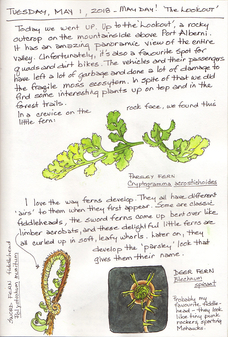 TUESDAY, MAY 1, 2018 - MAY DAY! 'The Lookout'
Today we went up. Up to the 'Lookout', a rocky
outcrop on the mountainside above Port Alberni.
It has an amazing panoramic view of the entire
valley. Unfortunately, it's also a favourite spot for
quads and dirt bikes. The vehicles and their passengers
have left a lot of garbage and done a lot of damage to
the fragile moss ecosystem. In spite of that we did
find some interesting plants up on top and in the
forest trails.
In a crevice on the rock face, we found this
little fern:
PARSLEY FERN
Cryptogramma acrostichoides
I love the way ferns develop. They all have different
'airs' to them when they first appear. Some are classic
fiddleheads, the sword ferns come up bent over like
limber acrobats, and these delightful little ferns are
all curled up in soft, leafy whorls. Later on, they
develop the 'parsley' look that
gives them their name.
SWORD FERN fiddlehead
Polystichum munitum
DEER FERN
Blechnum
spicant
Probably my
favourite fiddle-
head - they look
like tiny punk
rockers, sporting
Mohawks.